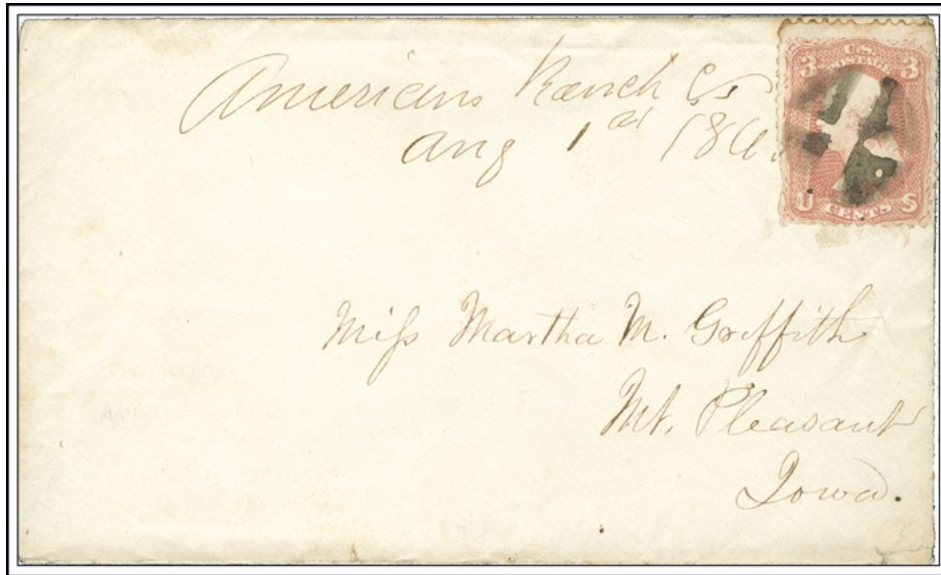 American Ranch C.T.
Aug 1st 186
3 U.S. POSTAGE 3
U CENTS S
Miſs Martha M. Griffith
Mt. Pleasant
Iowa.